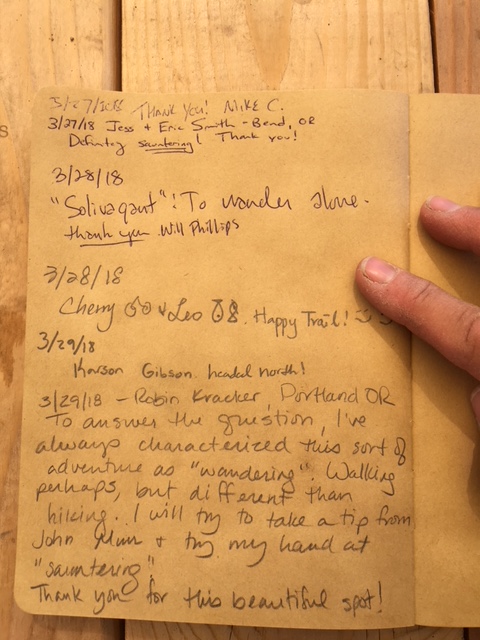 3/27/2018 THANK YOU! MIKE C.
3/27/18 Jess + Eric Smith - Bend, OR
Definitely sauntering! Thank you!
3/28/18
"Solivagant"! To wander alone.
thank you Will Phillips
3/28/18
Cherry & Leo. Happy Trail!
3/29/18
Karson Gibson headed north!
3/29/18 - Robin Kracker, Portland OR
To answer the question, I've
always characterized this sort of
adventure as "wandering". Walking
perhaps, but different than
hiking. I will try to take a tip from
John Muir + try my hand at
"sauntering"
Thank you for this beautiful spot!